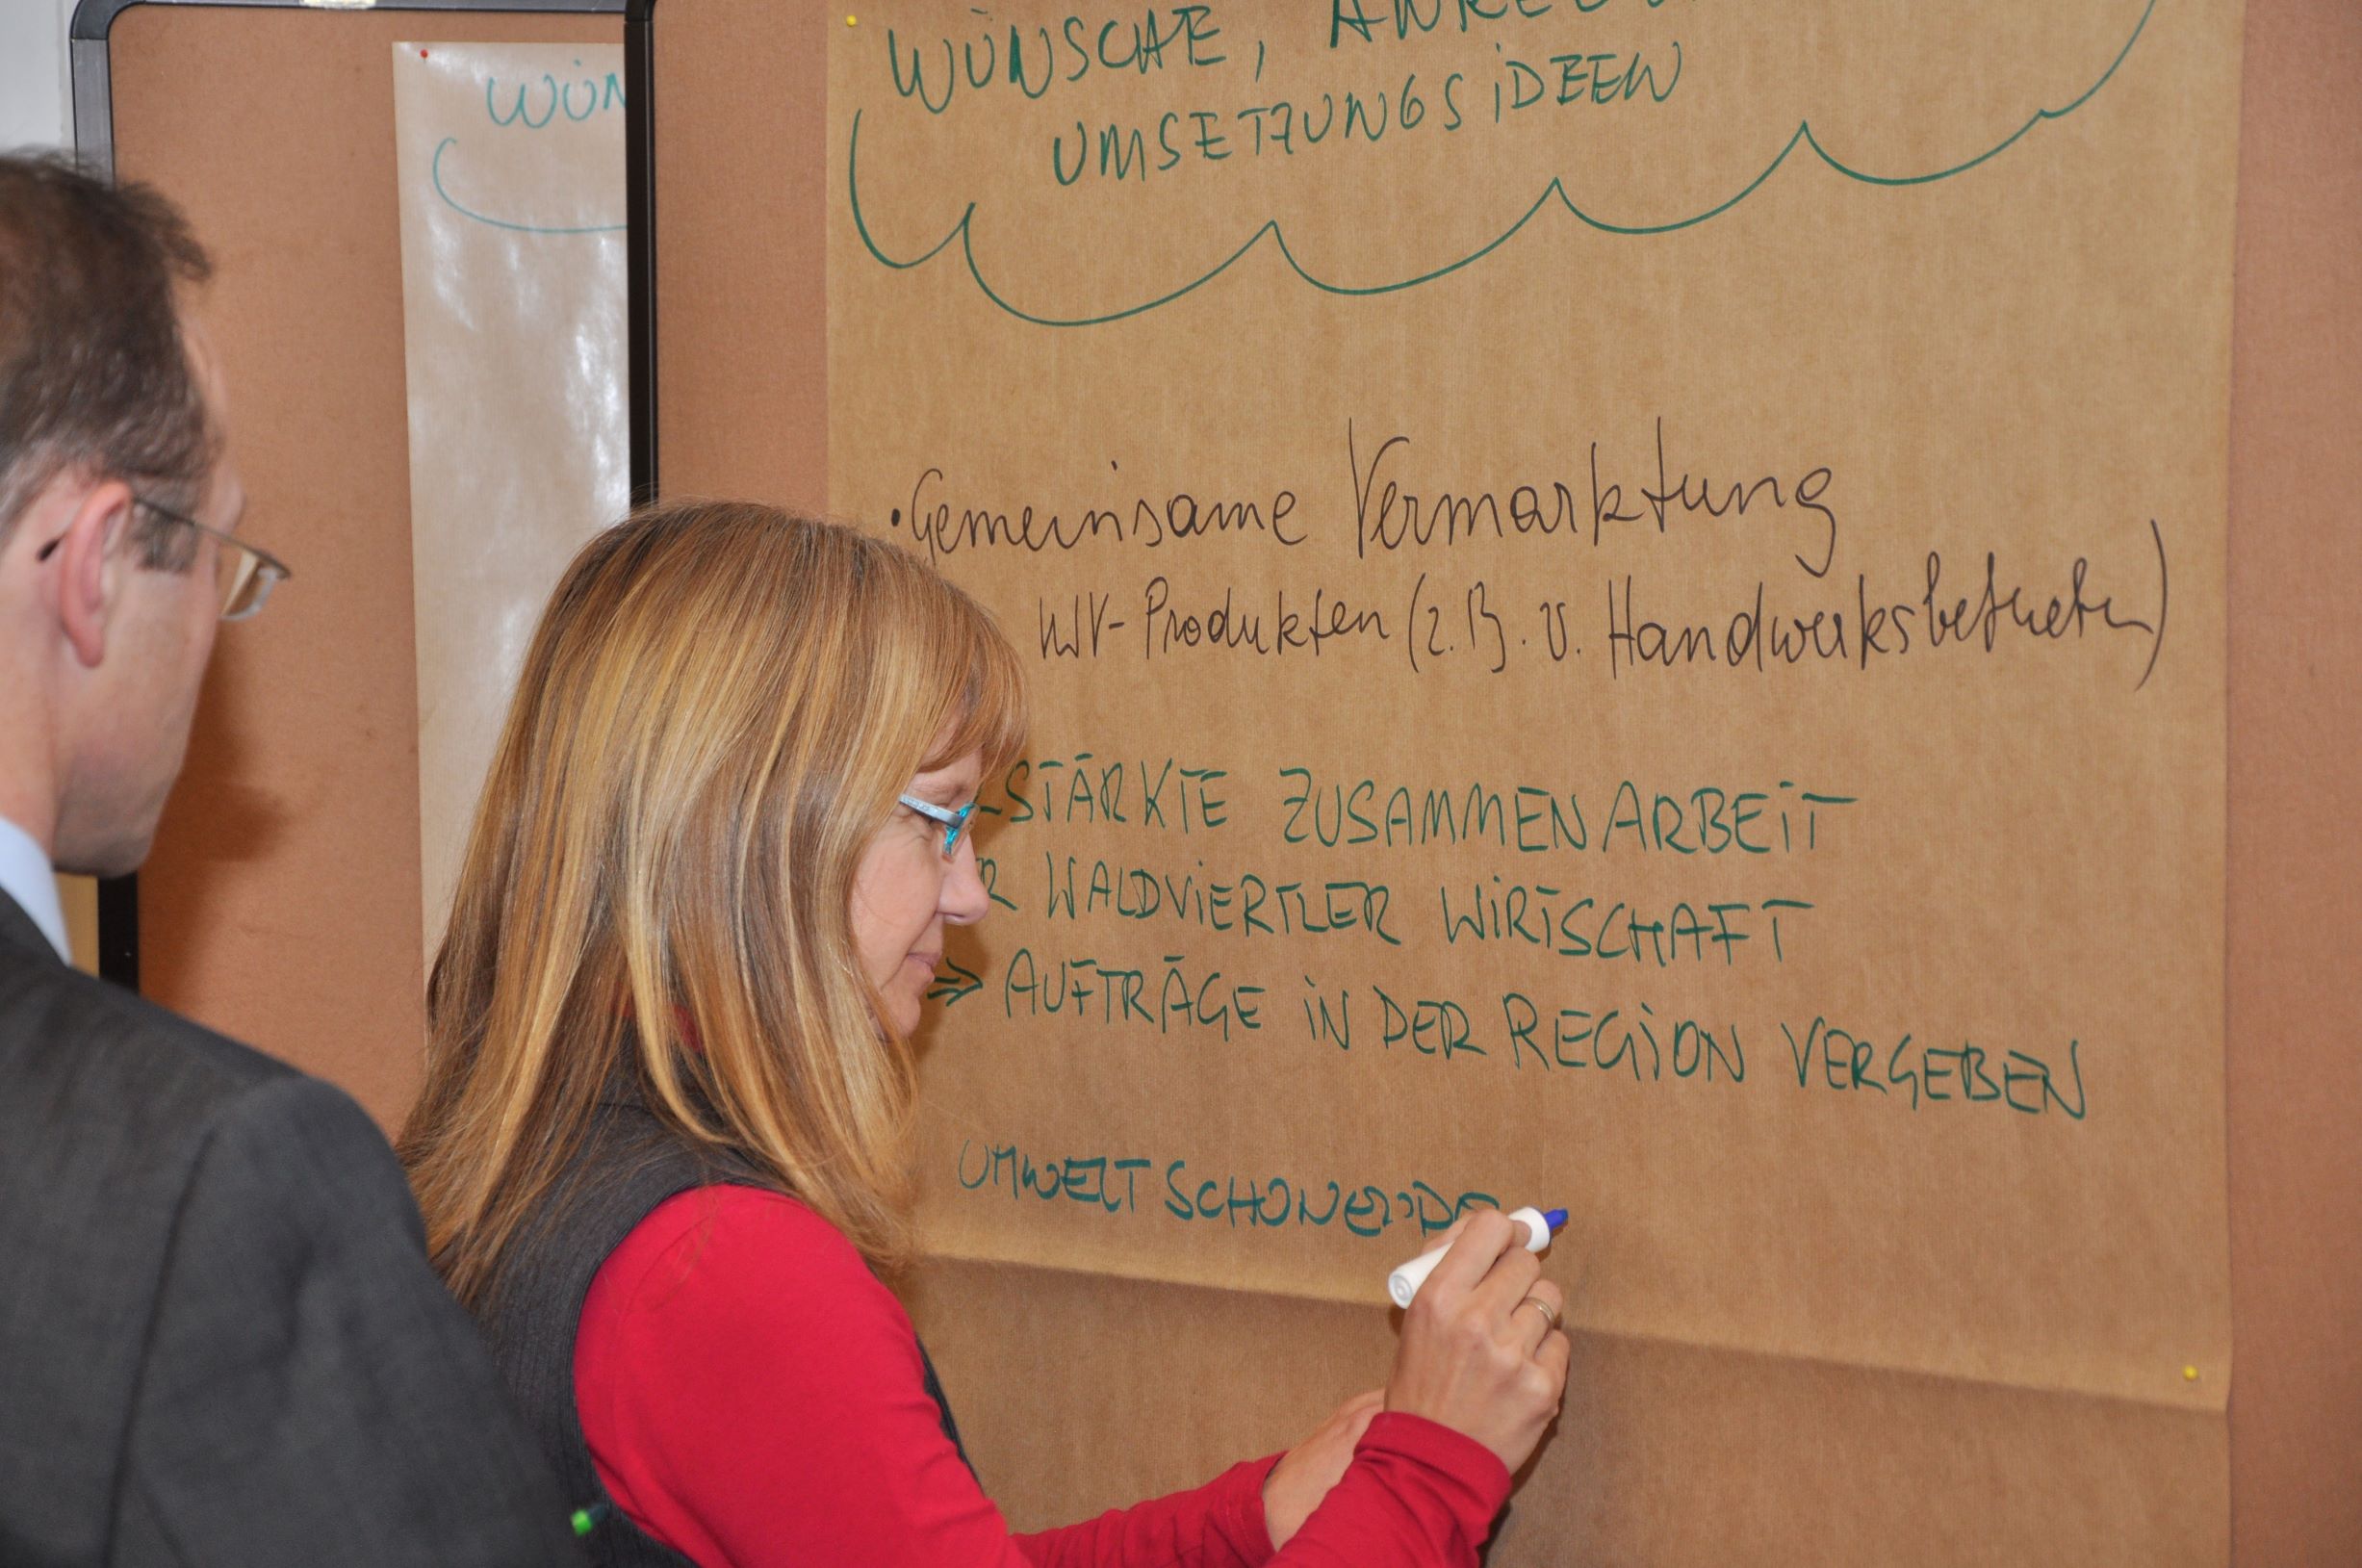 WÜN
WÜNSCHE,
UMSETZUNGSIDEEN
• Gemeinsame Vermarktung
WV-Produkten (z.B. v. Handwerksbetrieben)
STÄRKTE ZUSAMMENARBEIT
R WALDVIERTLER WIRTSCHAFT
⇒ AUFTRÄGE IN DER REGION VERGEBEN
UMWELTSCHON